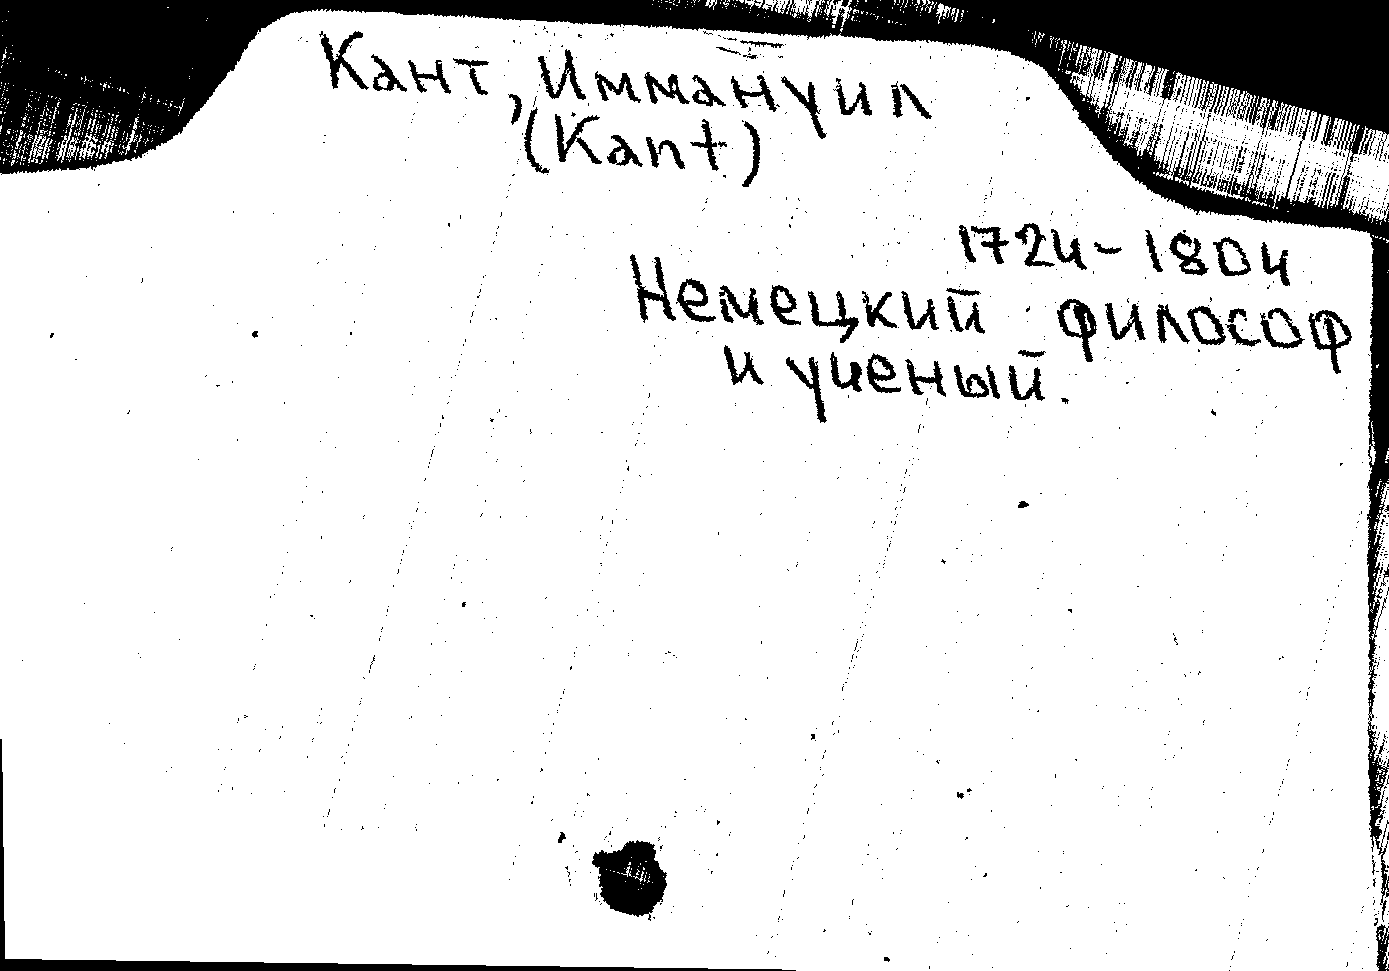 Кант, Иммануил
(Kant)
1724-1804
Немецкий философ
и ученый.